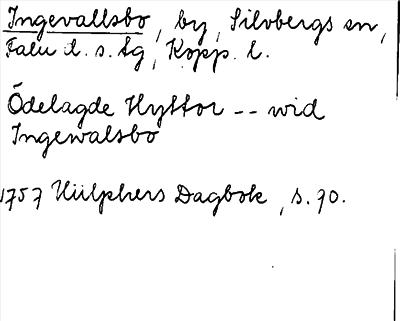 Ingevallsbo, by, Silvbergs sn,
Falu d. s. tg, Kopp. l.
Ödelagde Hyttor -- wid
Ingewalsbo
1757 Hülphers Dagbok, s. 70.